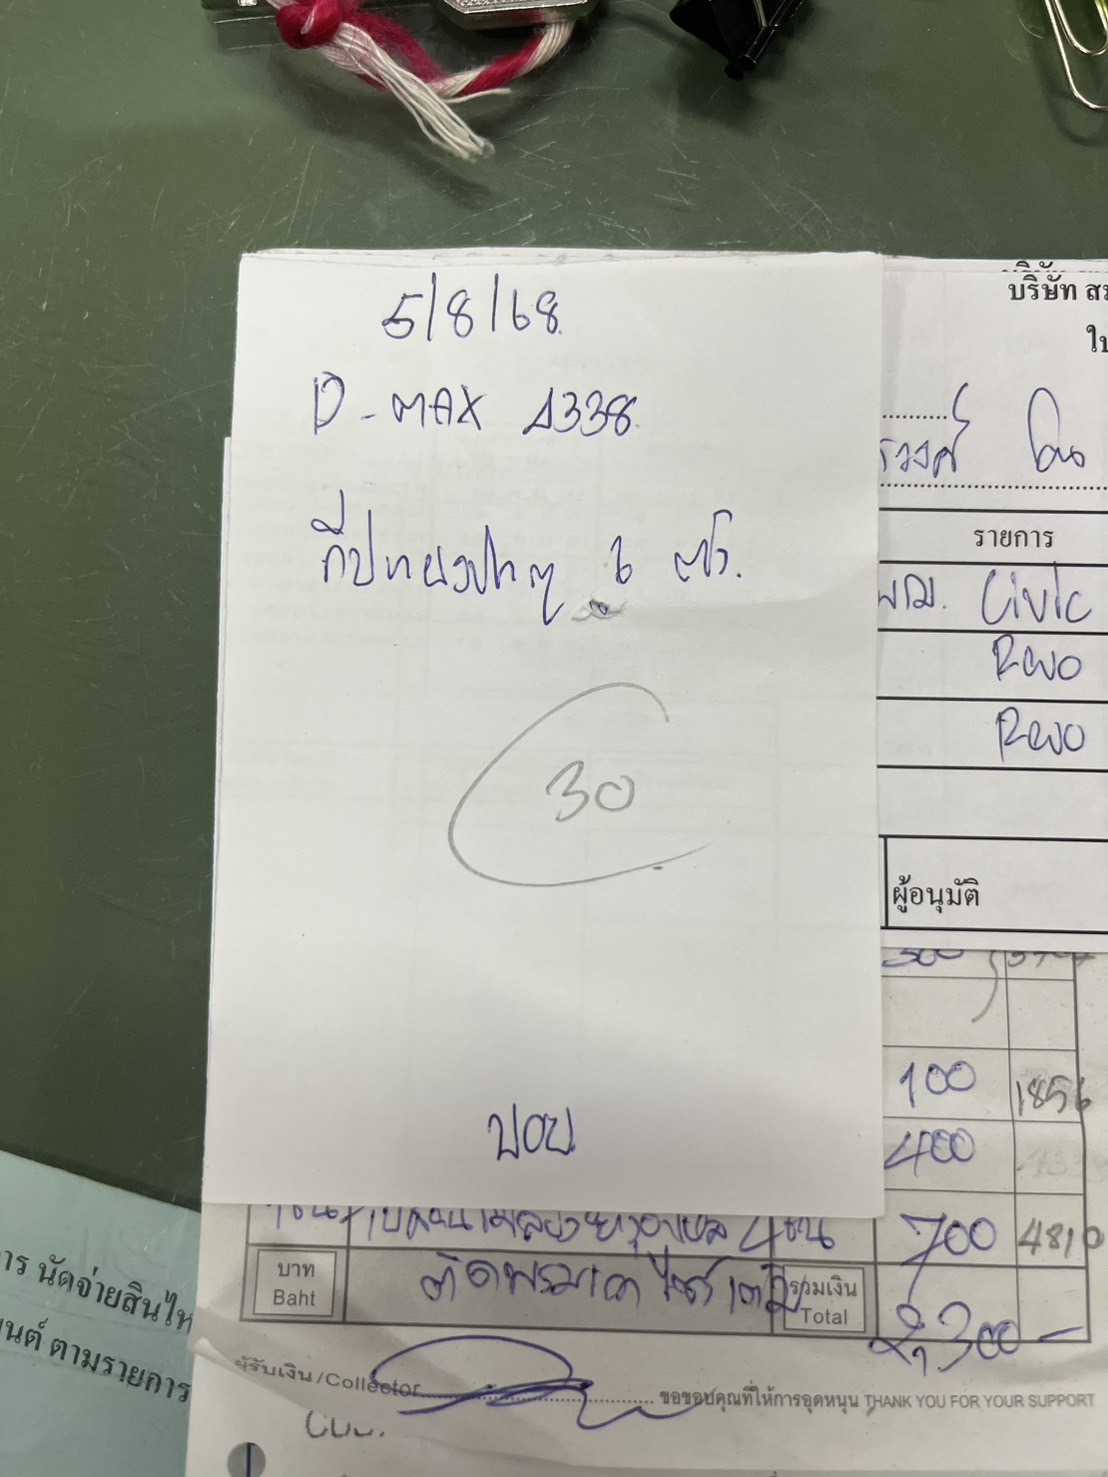 5/8/68
D-MAX 4338
กิ๊ปยางประตู 6 ตัว.
30
ปอบ
บริษัท
รวงศ์ โดน
รายการ
Civic
Revo
Revo
ผู้อนุมัติ
100 1856
400
4 ชิ้น 700 4810
บาท
Baht
รวมเงิน
Total
2,300-
ผู้รับเงิน/Collector
ขอขอบคุณที่ให้การอุดหนุน THANK YOU FOR YOUR SUPPORT
นัดจ่ายสินไห
ยนต์ ตามรายการ